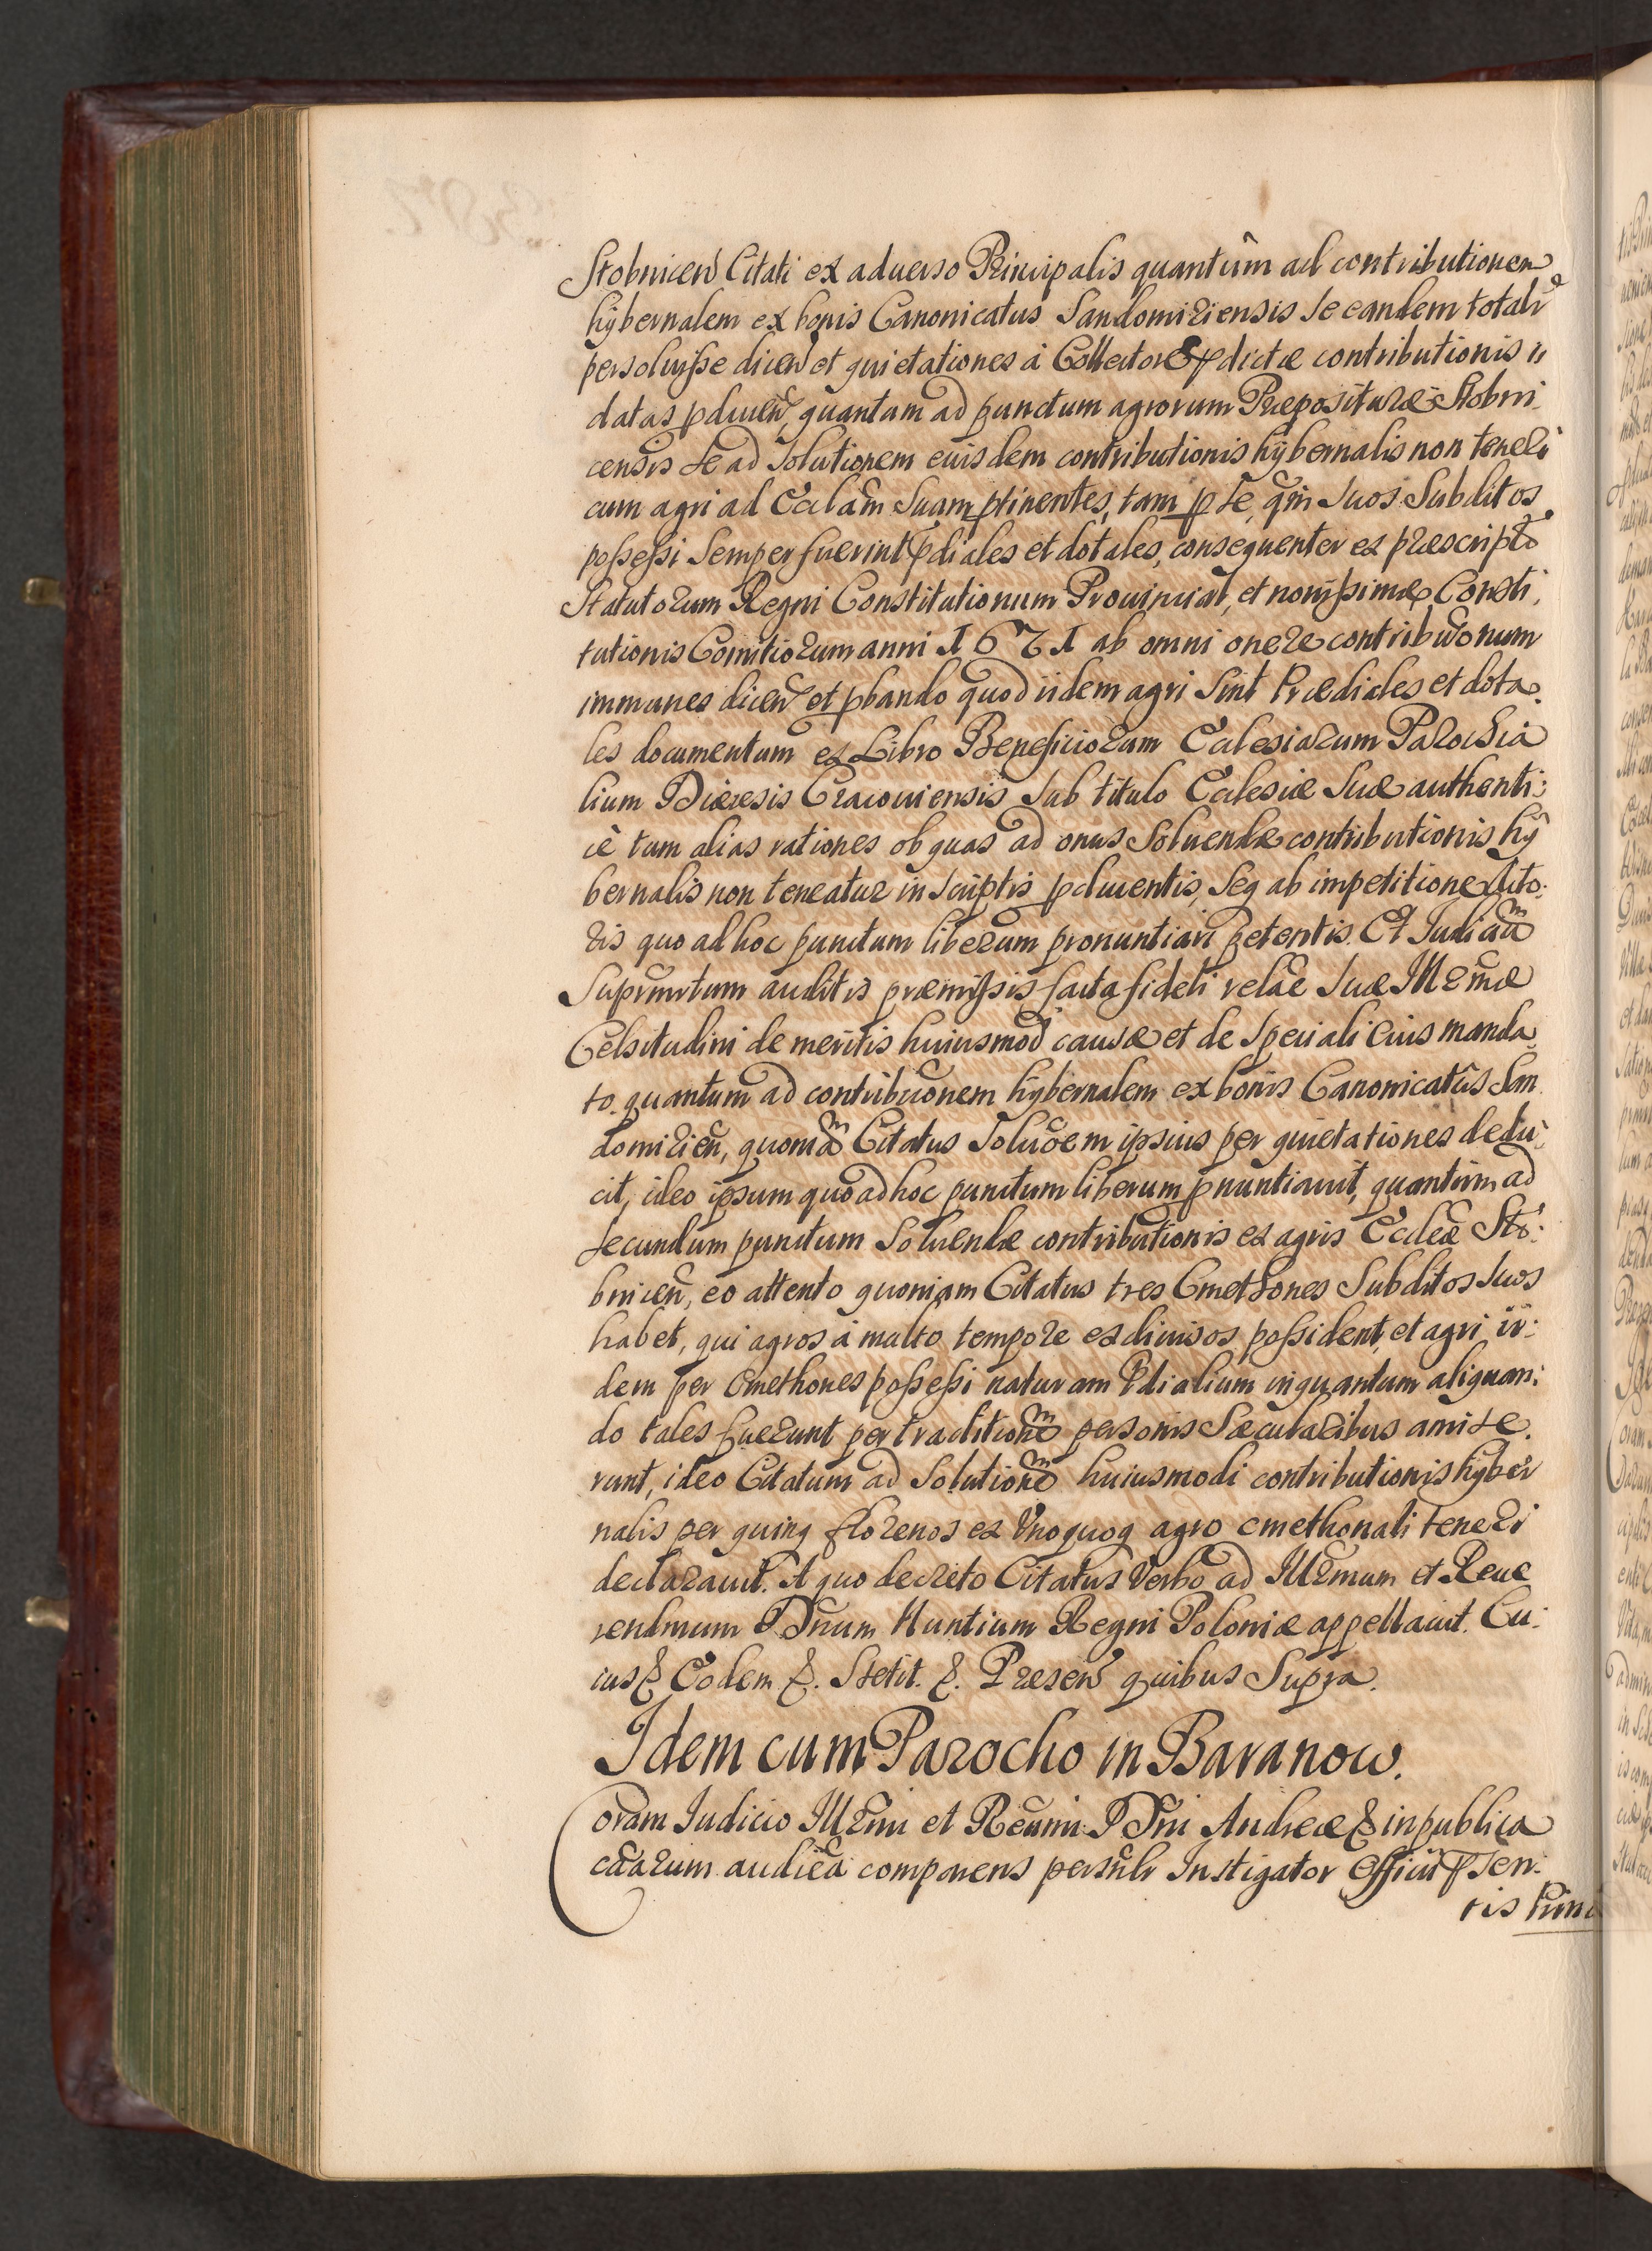 Stobnicen̄ Citati ex aduerso Principalis quantùm ad contributionem
hÿbernalem ex bonis Canonicatus Sandomiriensis Se eandem totalr̄
persoluiſse dicen̄ et quietationes à Collectore p̄dictæ contributionis
datas p̄ducen̄, quantum ad punctum agrorum Præposituræ Stobni,
censis Se ad Solutionem eiusdem contributionis hÿbernalis non teneri
cum agri ad Eccl̄am Suam ptinentes, tam p Se, qm̄ Suos Subditos
poſseſsi Semper fuerint p̄diales et dotales, consequenter ex præscripto
Statutorum Regni Constitutionum Prouincial, et nouiſsimæ Consti,
tutionis Comitiorum anni 1671 ab omni onere contribuōnum
immunes dicen̄ et pbando quod iidem agri Sint Prædiales et dota,
les documentum ex Libro Beneficiorum Ecclesiarum Parochia
lium Diæcesis Cracouiensis Sub titulo Ecclesiæ Suæ authenti:
cè tum alias rationes ob quas ad onus Soluendæ contributionis hÿ
bernalis non teneatur in Scriptis p̄ducentis, Seq ab impetitione Acto:
ris quo ad hoc punctum liberum pronuntiari petentis. Et Judiciū
Suprmitum auditis præmiſsis facta fideli relāe Suæ Illr̄mæ
Celsitudini de meritis huiusmodi causæ et de Speciali Eius manda
to. quantum ad contribuōnem hÿbernalem ex bonis Canonicatûs San
domirien̄, quoniā Citatus Soluōem ipsius per quietationes dedu,
cit, ideo ipsum quo ad hoc punctum liberum pnuntiauit, quantùm ad
Secundum punctum Soluendæ contributionis ex agris Eccleæ Sto:
bnicen̄, eo attento quoniam Citatus tres Cmethones Subditos Suos
habet, qui agros à multo tempore ex diuisos poſsident, et agri ii:
dem per Cmethones poſseſsi naturam P̄dialium inquantum aliquan:
do tales fuerunt per traditionē personis Sæcularibus amise,
runt, ideo Citatum ad Solutionē huiusmodi contributionis hÿber
nalis per quinq florenos ex Vnoquoq agro cmethonali teneri
declarauit. A quo decreto Citatus Verbo ad Illr̄mum et Reue
rendmum Dn̄um Nuntium Regni Poloniæ appellauit. Cu:
ius & Eodem &. Stetit. &. Præsen̄ quibus Supra.
Idem cum Parocho in Baranow.
Coram Judicio Illr̄mi et Reūmi Dn̄i Andreæ & in publica
cāarum audien̄a comparens persnlr̄ Instigator Officii p̄sen:
tis Princi